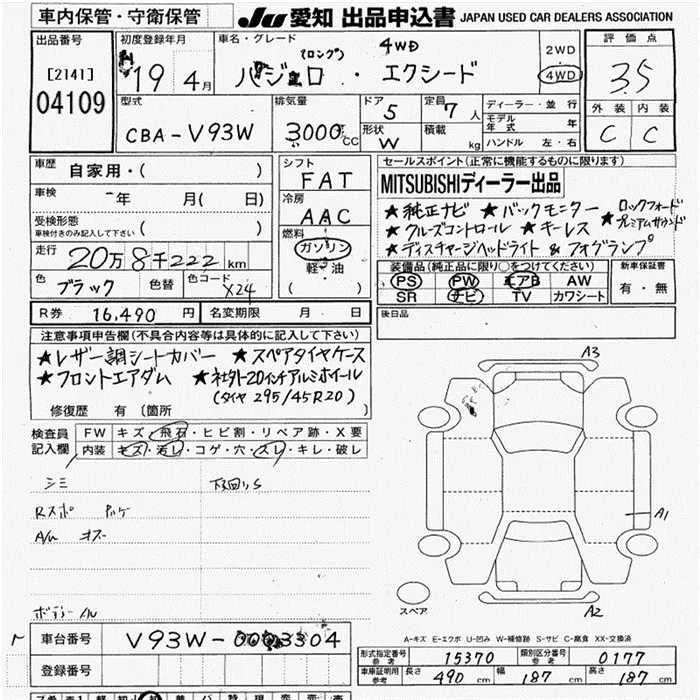 車内保管・守衛保管
JU 愛知 出品申込書 JAPAN USED CAR DEALERS ASSOCIATION
出品番号
[2141]
04109
初度登録年月
19年4月
車名・グレード
(ロング) 4WD
パジェロ・エクシード
2WD
4WD
評価点
3.5
外装 内装
C C
型式
CBA-V93W
排気量
3000cc
ドア
5
形状
W
定員
7人
積載 kg
ディーラー・並行
モデル年式 年
ハンドル 左・右
車歴
自家用・( )
車検
-年 月( 日)
受検形態
車検付きのみ記入して下さい ( )
走行
20万8千222km
色
ブラック
色替
色コード
X24
シフト
FAT
冷房
AAC
燃料
ガソリン
軽・油
( )
セールスポイント(正常に機能するものに限ります)
MITSUBISHIディーラー出品
★純正ナビ ★バックモニター ★ロックフォードプレミアムサウンド
★クルーズコントロール ★キーレス
★ディスチャージヘッドライト & フォグランプ
装備品(純正品に限り○をつけてください)
PS PW エアB AW
SR ナビ TV カワシート
新車保証書
有・無
R券 16,490円
名変期限 月 日
後日品
注意事項申告欄(不具合内容等は具体的に記入して下さい)
★レザー調シートカバー ★スペアタイヤケース
★フロントエアダム ★社外20インチアルミホイール
(タイヤ 295/45R20)
修復歴 有 〔箇所 〕
検査員記入欄
FW キズ・飛石・ヒビ割・リペア跡・X要
内装 キズ・汚レ・コゲ・穴・スレ・キレ・破レ
シミ 下回りS
Rスポ
A/w キズ
A3
A1
A2
スペア
A-キズ E-エクボ U-凹み W-補修跡 S-サビ C-腐食 XX-交換済
車台番号
V93W-0003304
登録番号
形式指定番号 参考 15370
類別区分番号 参考 0177
車庫証明用 参考 長さ 490cm 幅 187cm 高さ 187cm